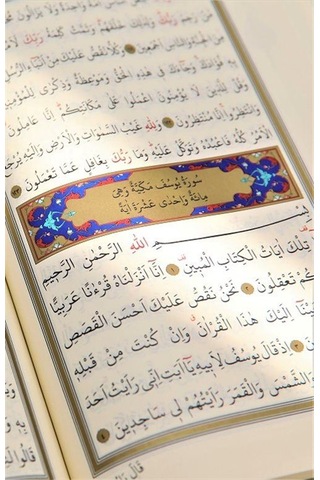 مِنْ رَحِمَ رَبُّكَ وَلِذٰلِكَ خَلَقَهُمْ وَتَمَّتْ كَلِمَةُ رَبِّكَ
مِنَ الْجِنَّةِ وَالنَّاسِ اَجْمَعِينَ ﴿١١٩﴾ وَكُلًّا نَقُصُّ عَلَيْكَ مِنْ اَنْبَٓاءِ الرُّسُلِ
بِهِ فُؤَادَكَ وَجَٓاءَكَ فِي هٰذِهِ الْحَقُّ وَمَوْعِظَةٌ وَذِكْرٰى لِلْمُؤْمِنِينَ
وَقُلْ لِلَّذِينَ لَا يُؤْمِنُونَ اعْمَلُوا عَلٰى مَكَانَتِكُمْ اِنَّا عَامِلُونَ
وَانْتَظِرُوا اِنَّا مُنْتَظِرُونَ ﴿١٢٢﴾ وَلِلّٰهِ غَيْبُ السَّمٰوَاتِ وَالْاَرْضِ وَاِلَيْهِ يُرْجَعُ
الْاَمْرُ كُلُّهُ فَاعْبُدْهُ وَتَوَكَّلْ عَلَيْهِ وَمَا رَبُّكَ بِغَافِلٍ عَمَّا تَعْمَلُونَ ﴿١٢٣﴾
سُورَةُ يُوسُفَ مَكِّيَّةٌ وَهِيَ
مِائَةٌ وَاِحْدٰى عَشْرَةَ اٰيَةً
بِسْمِ اللّٰهِ الرَّحْمٰنِ الرَّحِيمِ
تِلْكَ اٰيَاتُ الْكِتَابِ الْمُبِينِ ﴿١﴾ اِنَّٓا اَنْزَلْنَاهُ قُرْءٰنًا عَرَبِيًّا
تَعْقِلُونَ ﴿٢﴾ نَحْنُ نَقُصُّ عَلَيْكَ اَحْسَنَ الْقَصَصِ
اِلَيْكَ هٰذَا الْقُرْاٰنَ وَاِنْ كُنْتَ مِنْ قَبْلِهِ
﴿٣﴾ اِذْ قَالَ يُوسُفُ لِاَبِيهِ يَٓا اَبَتِ اِنِّي رَاَيْتُ اَحَدَ
وَالشَّمْسَ وَالْقَمَرَ رَاَيْتُهُمْ لِي سَاجِدِينَ ﴿٤﴾
قَالَ